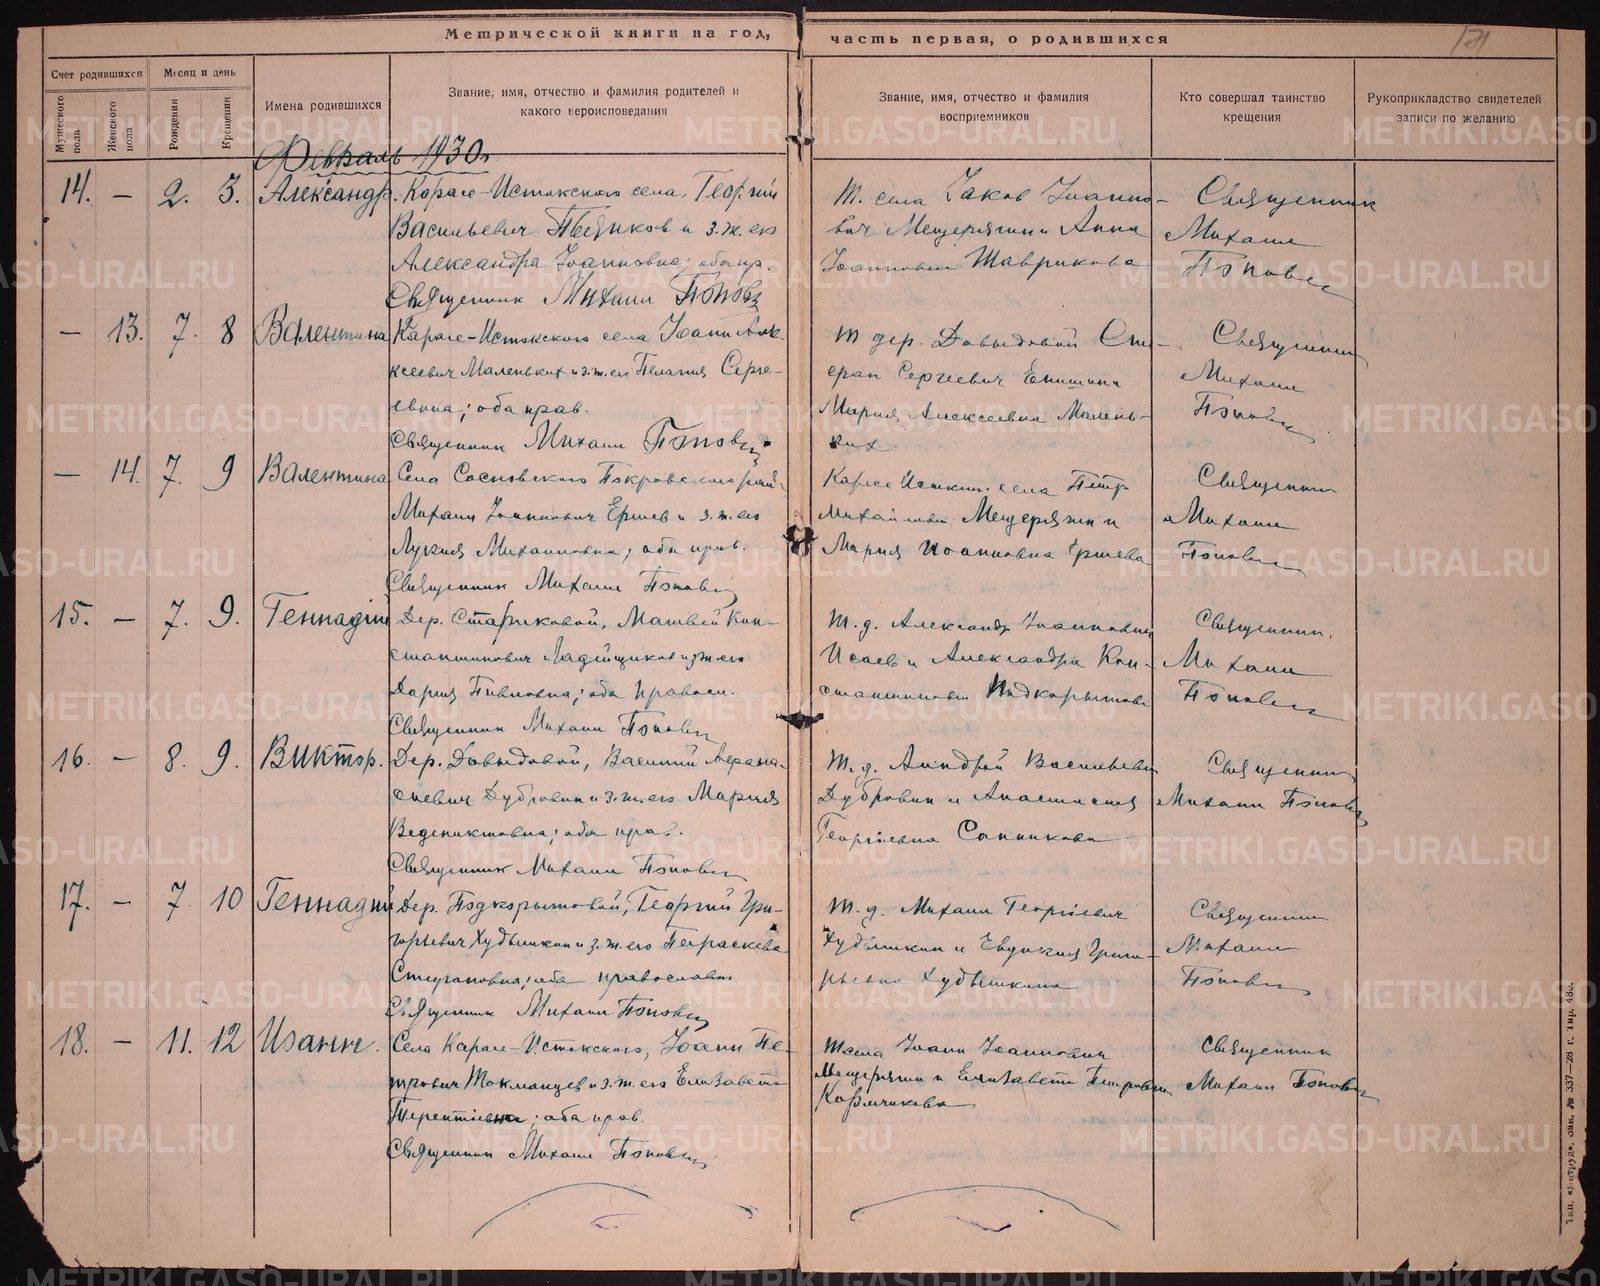 Метрической книги на год,
часть первая, о родившихся
Счет родившихся
Месяц и день
Мужеского пола
Женского пола
Рождения
Крещения
Имена родившихся
Звание, имя, отчество и фамилия родителей и
какого вероисповедания
Звание, имя, отчество и фамилия
восприемников
Кто совершал таинство
крещения
Рукоприкладство свидетелей
записи по желанию
Февраль 1930г
14. — 2. 3. Александр.
Карасе-Истокского села, Георгий
Васильевич Пьянков и з.ж. его
Александра Иоанновна; оба пр.
Священник Михаил Попов
Т. села Иаков Иоанно-
вич Мещерягин и Анна
Иоанновна Шаврикова
Священник
Михаил
Попов
— 13. 7. 8 Валентина
Карасе-Истокского села Иоанн Але-
ксеевич Маленьких и з.ж. его Пелагия Серге-
евна; оба прав.
Священник Михаил Попов
Т дер. Давыдовой
Сергеевич
Мария Алексеевна Малень-
ких
Священник
Михаил
Попов
— 14. 7. 9 Валентина
Села Сосновского Покровского рай.
Михаил Иоаннович Ершев и з.ж. его
Лукия Михаиловна; оба прав.
Священник Михаил Попов
Карасе Исток. села Петр
Мещерягин и
Мария Иоанновна Ершева
Священник
Михаил
Попов
15. — 7. 9. Геннадий
Дер. Стариковой, Матвей Кон-
стантинович Ладейщиков и з ж его
Дария; оба правосл.
Священник Михаил Попов
Т. д. Александр Иоаннович
Исаев и Александра Кон-
стантиновна Подкорытова
Священник
Михаил
Попов
16. — 8. 9. Виктор.
Дер. Давыдовой, Василий Афана-
сиевич Дубровин и з.ж. его Мария
Ведениктовна; оба прав.
Священник Михаил Попов
Т. д. Андрей Васильевич
Дубровин и Анастасия
Георгиевна Санникова
Священник
Михаил Попов
17. — 7. 10 Геннадий
Дер. Подкорытовой, Георгий Гри-
горьевич Худышкин и з.ж. его Параскева
Стефановна; оба православн.
Священник Михаил Попов
Т. д. Михаил Георгиевич
Худышкин и Евдокия Григо-
рьевна Худышкина
Священник
Михаил
Попов
18. — 11. 12 Иоанн.
Села Карасе-Истокского, Иоанн Пе-
трович Токманцев и з.ж. его Елизавета
Терентиевна; оба прав.
Священник Михаил Попов
Т села Иоанн Иоаннович
Мещерягин и Елизавета Петровна
Священник
Михаил Попов
METRIKI.GASO-URAL.RU